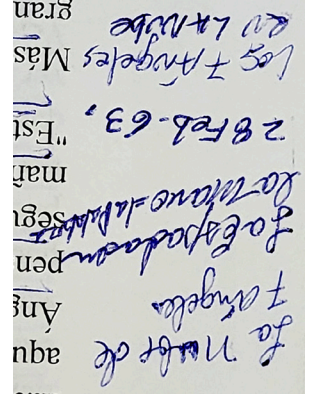 La Nube de
7 Angeles
La Espada en
la Mano - la Palabra
28 Feb - 63,
Los 7 Ángeles
en LA Nube
aqu
Áng
pen
segu
mañ
"Est
Más
gran